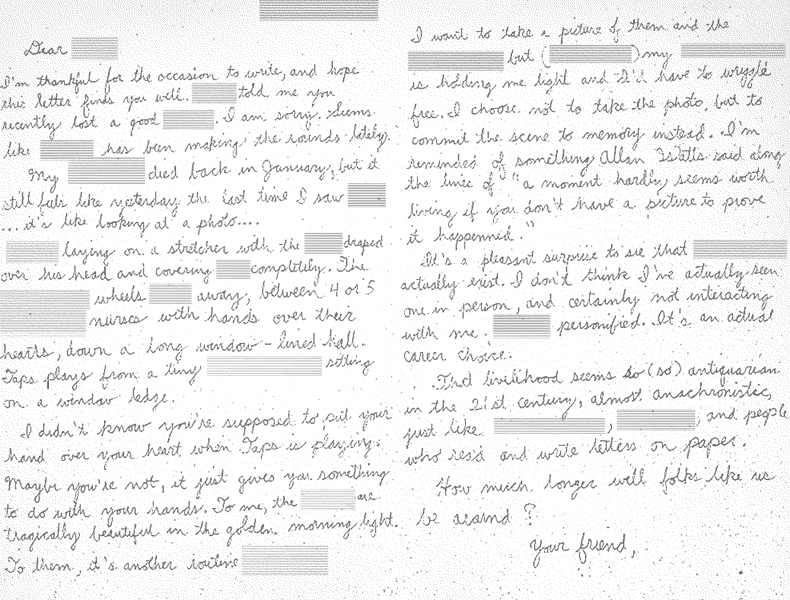 Dear
I'm thankful for the occasion to write, and hope
this letter finds you well. told me you
recently lost a good . I am sorry. Seems
like has been making the rounds lately.
My died back in January, but it
still feels like yesterday the last time I saw
... it's like looking at a photo....
laying on a stretcher with the draped
over his head and covering completely. The
wheels away, between 4 or 5
nurses with hands over their
hearts, down a long window-lined hall.
Taps plays from a tiny sitting
on a window ledge.
I didn't know you're supposed to put your
hand over your heart when Taps is playing.
Maybe you're not, it just gives you something
to do with your hands. To me, the are
tragically beautiful in the golden morning light.
To them, it's another routine
I want to take a picture of them and the
but ( ) my
is holding me tight and I'd have to wriggle
free. I choose not to take the photo, but to
commit the scene to memory instead. I'm
reminded of something Allan said along
the lines of "a moment hardly seems worth
living if you don't have a picture to prove
it happenned."
It's a pleasant surprise to see that
actually exist. I don't think I've actually seen
one in person, and certainly not interacting
with me. personified. It's an actual
career choice.
That livelihood seems so (so) antiquarian
in the 21st century, almost anachronistic,
just like , , and people
who read and write letters on paper.
How much longer will folks like us
be around?
Your friend,